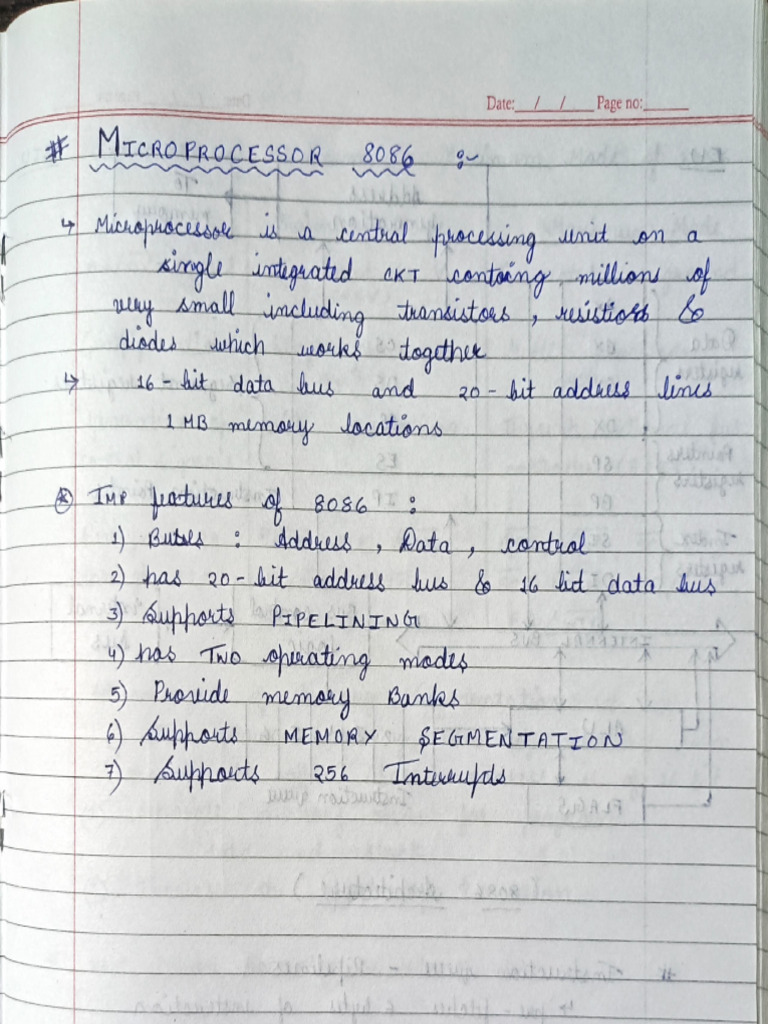 Date: __/__/__ Page no:______
# MICROPROCESSOR 8086 :-
↳ Microprocessor is a central processing unit on a
single integrated CKT containg millions of
very small including transistors, resistiors &
diodes which works together
↳ 16-bit data bus and 20-bit address lines
1 MB memory locations
* IMP features of 8086 :
1) Buses : Address, Data, control
2) has 20-bit address bus & 16 bit data bus
3) Supports PIPELINING
4) has TWO operating modes
5) Provide memory Banks
6) Supports MEMORY SEGMENTATION
7) Supports 256 Interrupts